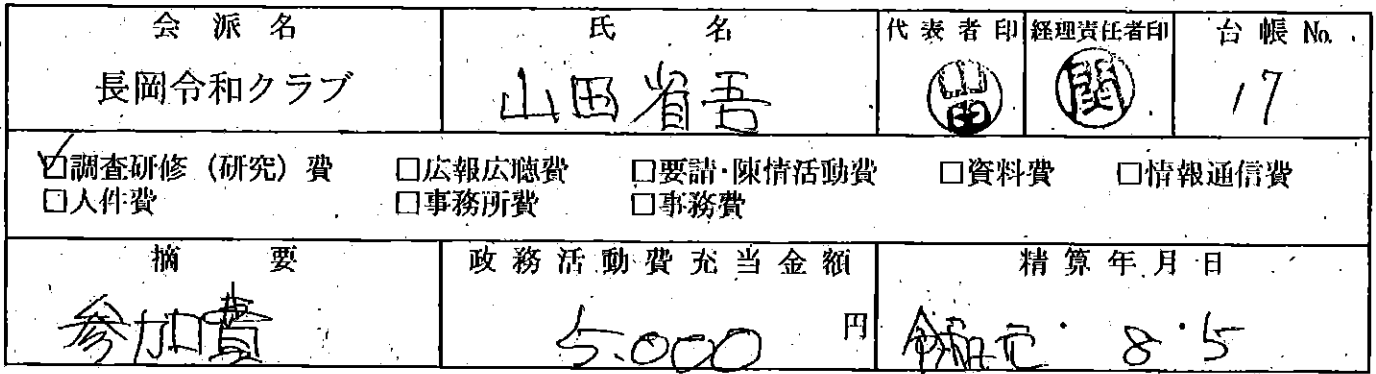 会派名 氏名 代表者印 経理責任者印 台帳No.
長岡令和クラブ 山田省吾 山田 関 17
☑調査研修（研究）費 □広報広聴費 □要請・陳情活動費 □資料費 □情報通信費
□人件費 □事務所費 □事務費
摘要 政務活動費充当金額 精算年月日
参加費 5,000 円 令和元・8・5